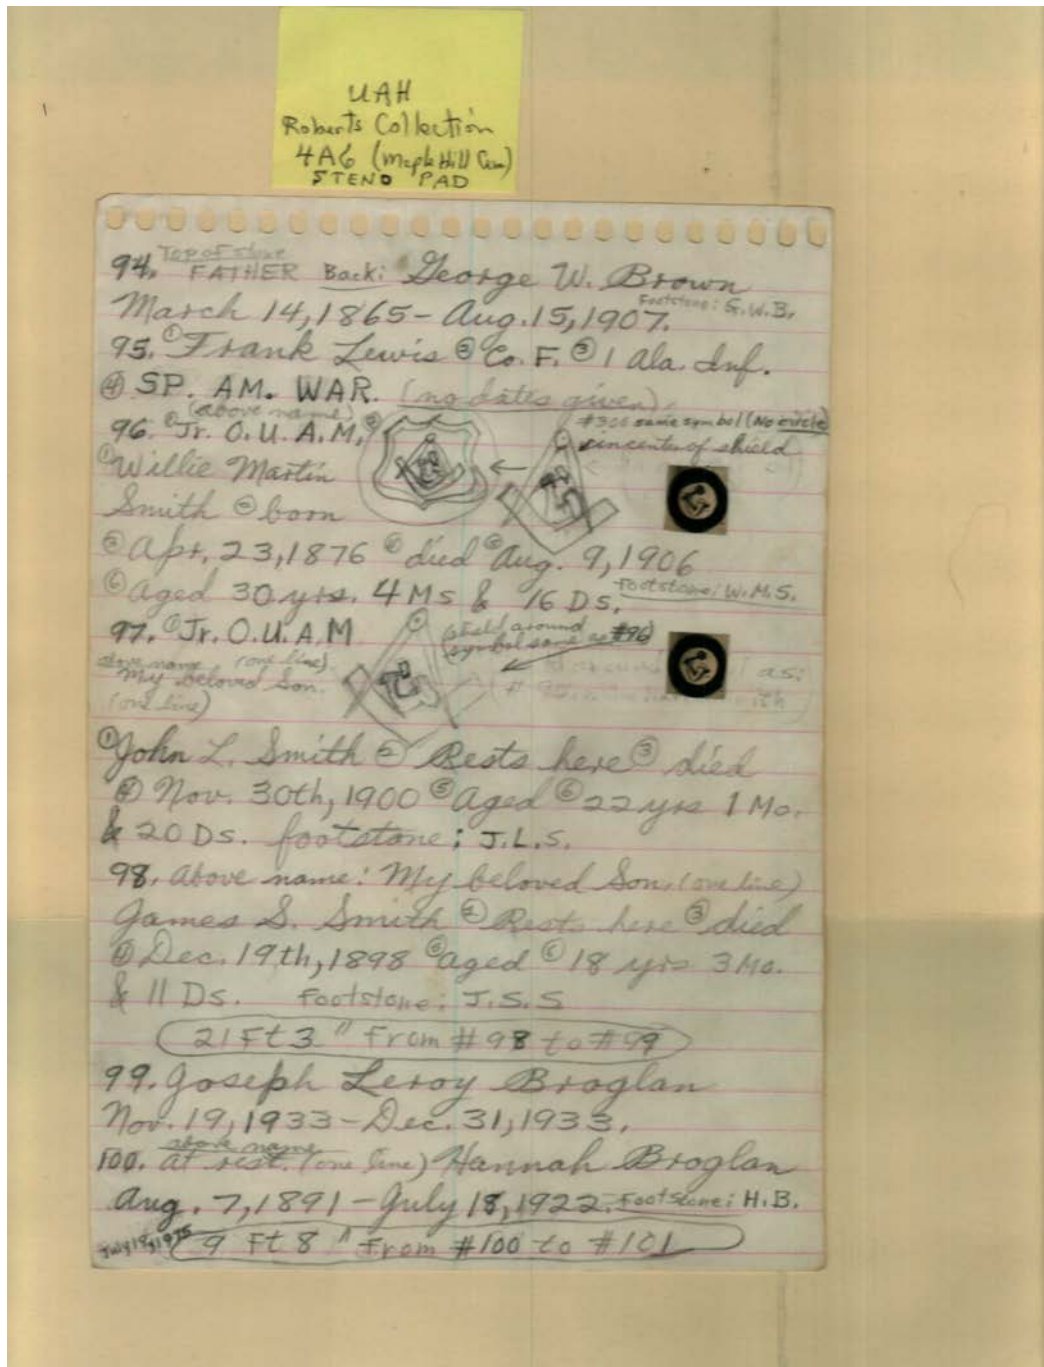 UAH
Roberts Collection
4A6 (Maple Hill Cem)
STENO PAD
Top of stone
94. FATHER Back: George W. Brown
March 14, 1865 - Aug. 15, 1907. Footstone: G.W.B.
95. ① Frank Lewis ② Co. F. ③ 1 Ala. Inf.
④ SP. AM. WAR. (no dates given).
(above name) #306 same symbol (No circle)
96. ① Jr. O. U. A. M. ② in center of shield
① Willie Martin
Smith ② born
③ Apr. 23, 1876 ④ died ⑤ Aug. 9, 1906
⑥ Aged 30 yrs. 4 Ms & 16 Ds. Footstone: W.M.S.
97. ① Jr. O.U.A.M (shield around
symbol same as #96)
above name (one line).
My beloved Son. as:
(one line)
① John L. Smith ② Rests here ③ died
④ Nov. 30th, 1900 ⑤ Aged ⑥ 22 yrs 1 Mo.
& 20 Ds. footstone: J.L.S.
98. Above name: My beloved Son. (one line)
James S. Smith ② Rests here ③ died
④ Dec. 19th, 1898 ⑤ aged ⑥ 18 yrs 3 Mo.
& 11 Ds. Footstone: J.S.S
21 Ft 3 " From #98 to #99
99. Joseph Leroy Broglan
Nov. 19, 1933 - Dec. 31, 1933.
above name
100. At rest. (one line) Hannah Broglan
Aug. 7, 1891 - July 18, 1922. Footstone: H.B.
July 18, 1975 9 Ft 8 " From #100 to #101